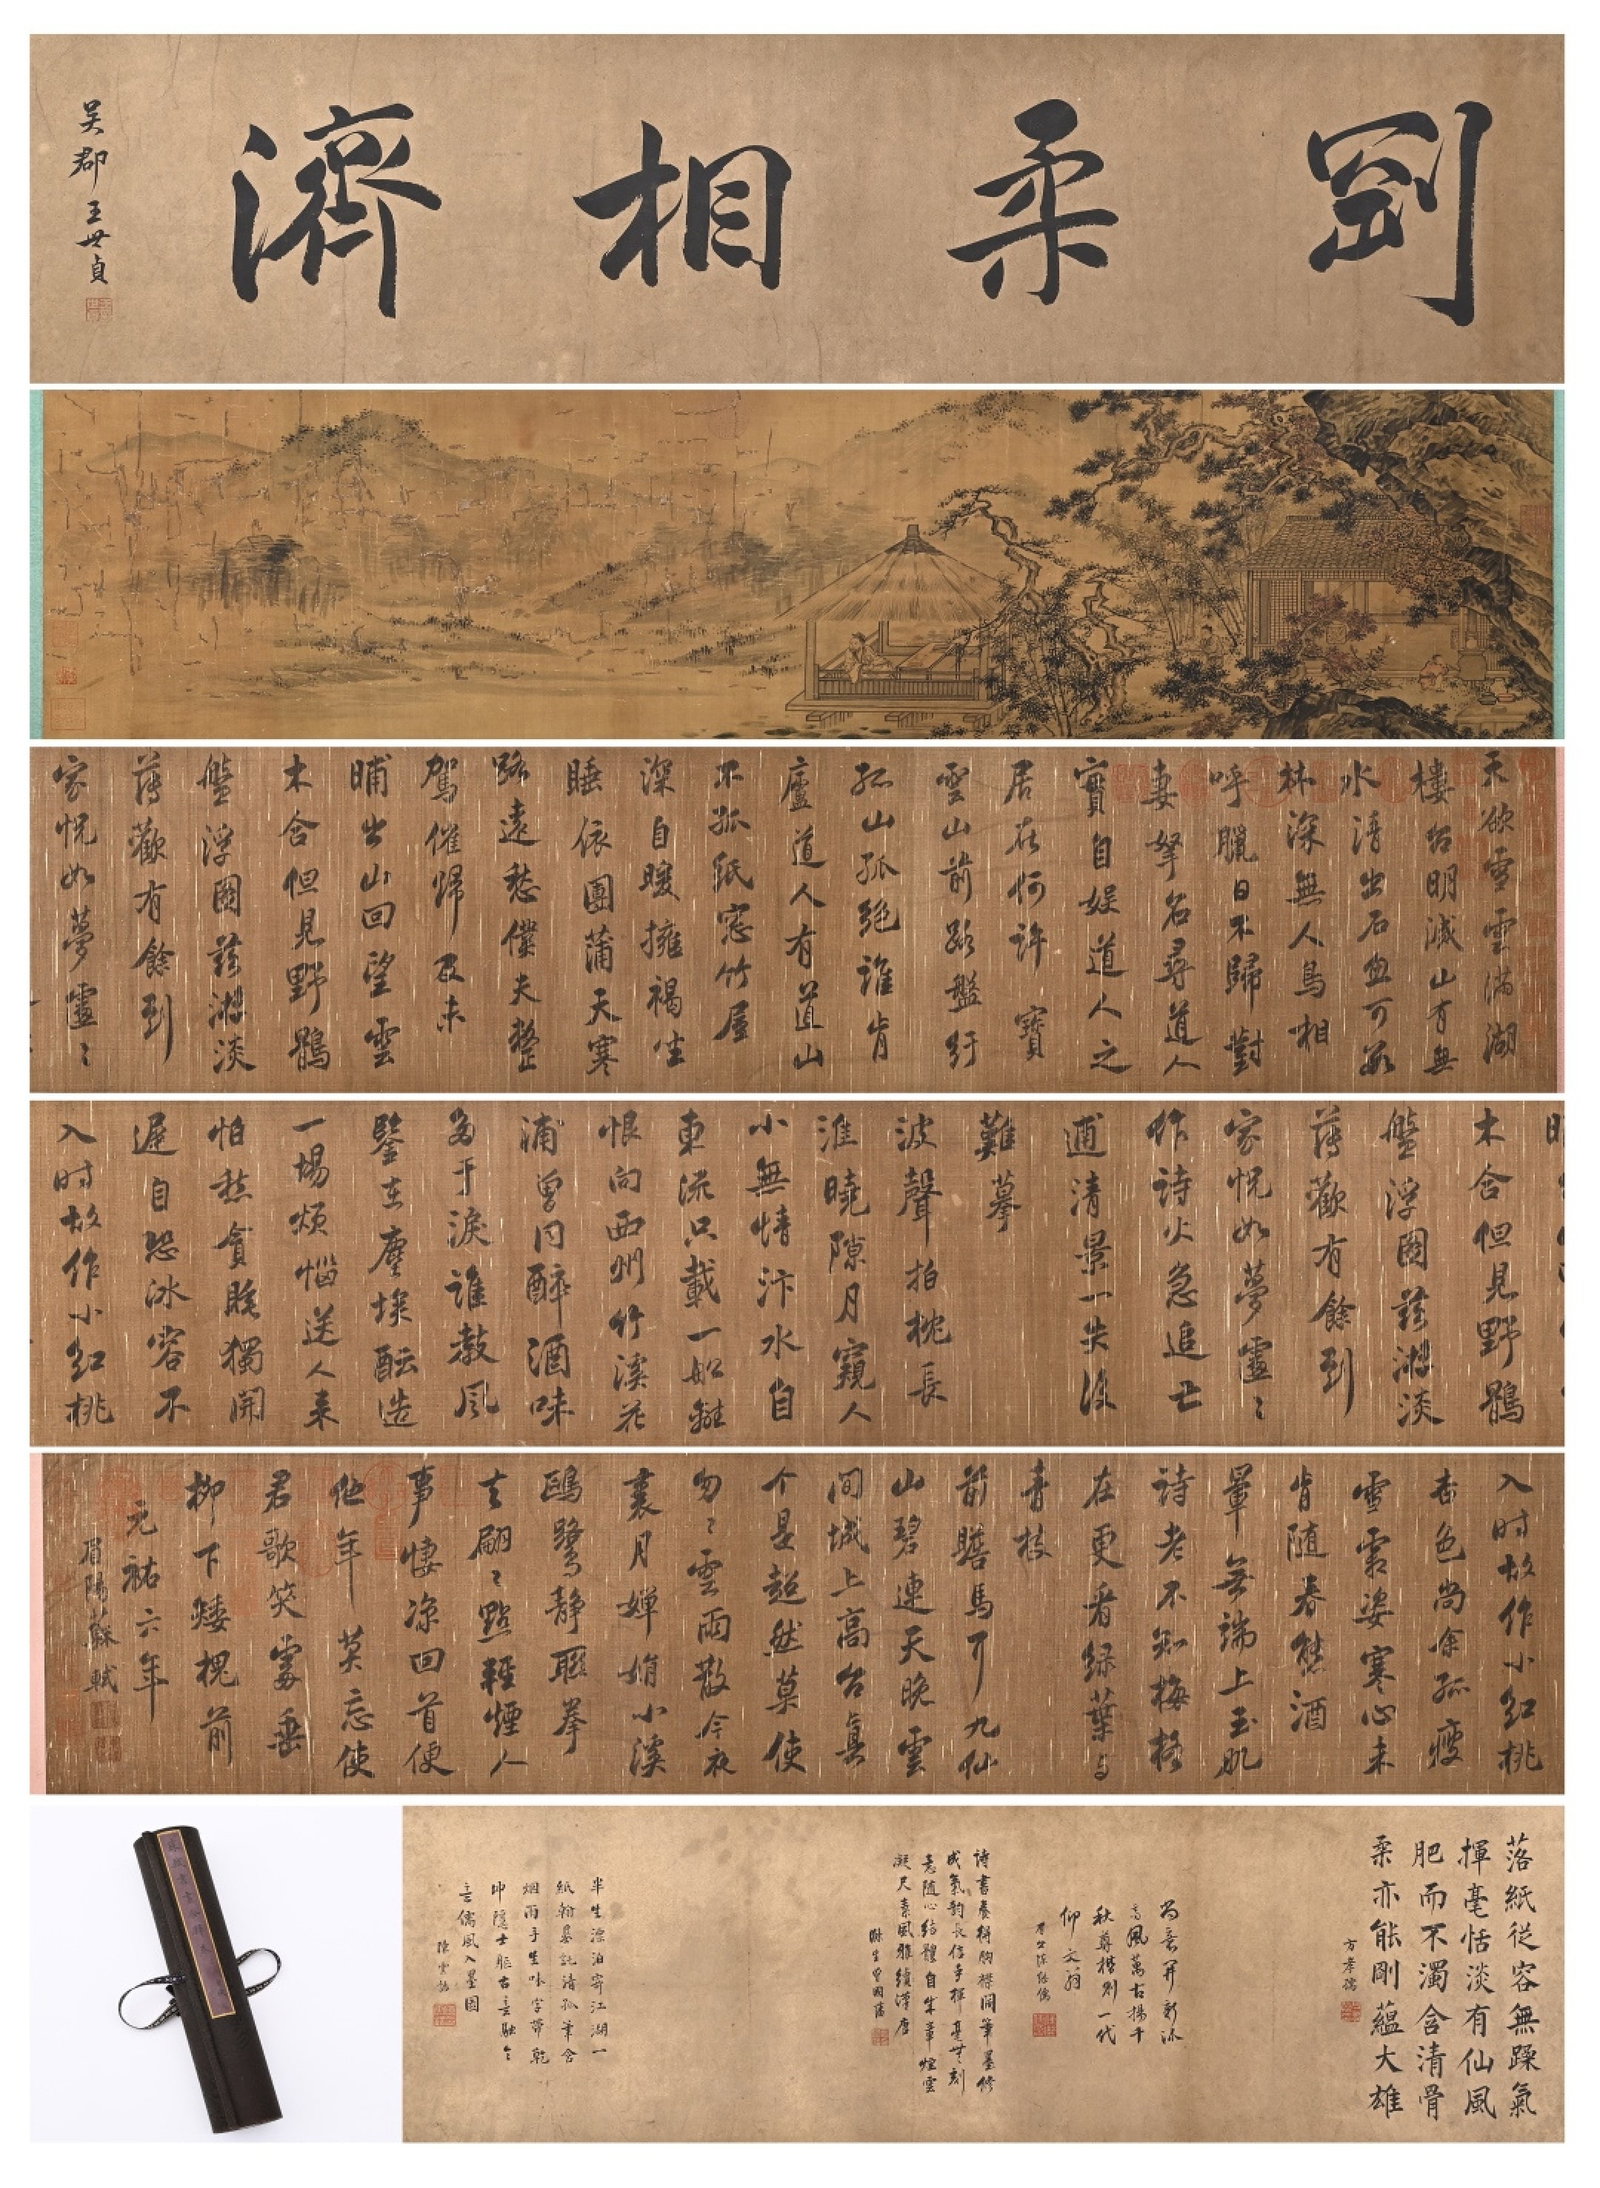 剛柔相濟
吳郡王世貞
天欲雪雲滿湖
樓台明滅山有無
水清出石魚可數
林深無人鳥相
呼臘日不歸對
妻孥名尋道人
實自娛道人之
居在何許寶
雲山前路盤紆
孤山孤絕誰肯
廬道人有道山
不孤紙窓竹屋
深自暖擁褐坐
睡依團蒲天寒
路遠愁僕夫整
駕催歸及未
晡出山回望雲
木合但見野鶻
盤浮圖茲遊淡
薄歡有餘到
家怳如夢蘧〻
木合但見野鶻
盤浮圖茲遊淡
薄歡有餘到
家怳如夢蘧〻
作詩火急追亡
逋清景一失後
難摹
波聲拍枕長
淮曉隙月窺人
小無情汴水自
東流只載一船離
恨向西州竹溪花
浦曾同醉酒味
多于淚誰教風
鑒在塵埃醖造
一場煩惱送人來
怕愁貪睡獨開
遲自恐冰容不
入時故作小紅桃
入時故作小紅桃
杏色尚余孤瘦
雪霜姿寒心未
肯隨春態酒
暈無端上玉肌
詩老不知梅格
在更看綠葉與
青枝
前瞻馬耳九仙
山碧連天晚雲
間城上高台真
个是超然莫使
匆〻雲雨散今夜
裏月嬋娟小溪
鷗鷺靜聯拳
去翩〻點輕煙人
事悽凉回首便
他年莫忘使
君歌笑處垂
柳下矮槐前
元祐六年
眉陽蘇軾
落紙從容無躁氣
揮毫恬淡有仙風
肥而不濁含清骨
柔亦能剛蘊大雄
方孝孺
尚意開新派
高風萬古揚千
秋尊楷則一代
仰文翁
詩書養料胸襟闊筆墨修
成氣韵長信手揮毫無刻
意隨心結體自成章煙雲
凝尺素風雅續漢唐
曾國藩
半生漂泊寄江湖一
紙翰墨託清孤筆含
烟雨手生味字帶乾
坤隱士 古意融今
意儒風入墨圖